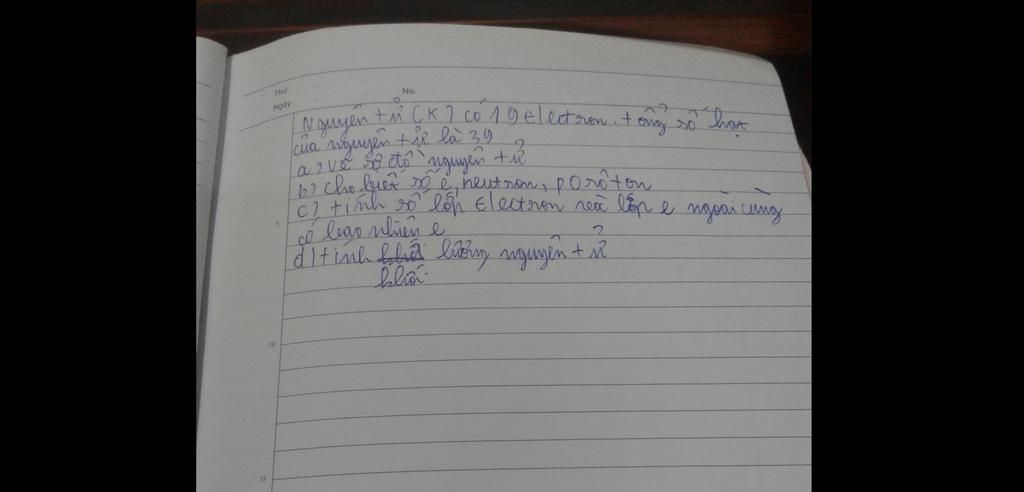 Thứ
No.
Ngày
Nguyên tử (K) có 19 Electron. tổng số hạt
của nguyên tử là 39
a, vẽ sơ đồ nguyên tử
b, cho biết số e, neutron, pơrôton
c) tính số lớp Electron và lớp e ngoài cùng
có bao nhiên e
d) tính lượng nguyên tử
khối
5
10
15